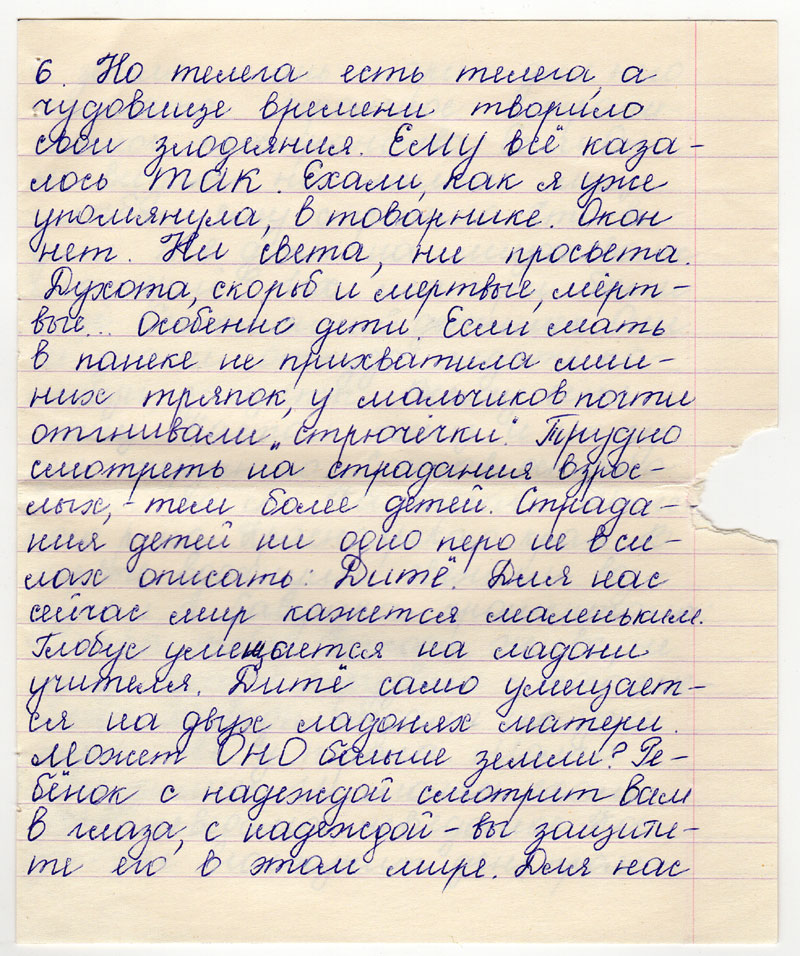 6. Но телега есть телега, а
чудовище времени творило
свои злодеяния. ЕМУ всё каза-
лось ТАК. Ехали, как я уже
упомянула, в товарнике. Окон
нет. Ни света, ни просвета.
Духота, скорьб и мертвые, мёрт-
вые... Особенно дети. Если мать
в панеке не прихватила лиш-
них тряпок, у мальчиков почти
отгнивали „стрючёчки". Трудно
смотреть на страдания взрос-
лых, - тем более детей. Страда-
ния детей ни одно перо не в си-
лах описать: Дитё. Для нас
сейчас мир кажется маленьким.
Глобус умещается на ладони
учителя. Дитё само умещает-
ся на двух ладонях матери.
Может ОНО больше земли? Ре-
бёнок с надеждой смотрит Вам
в глаза, с надеждой - вы защити-
те его в этом мире. Для нас